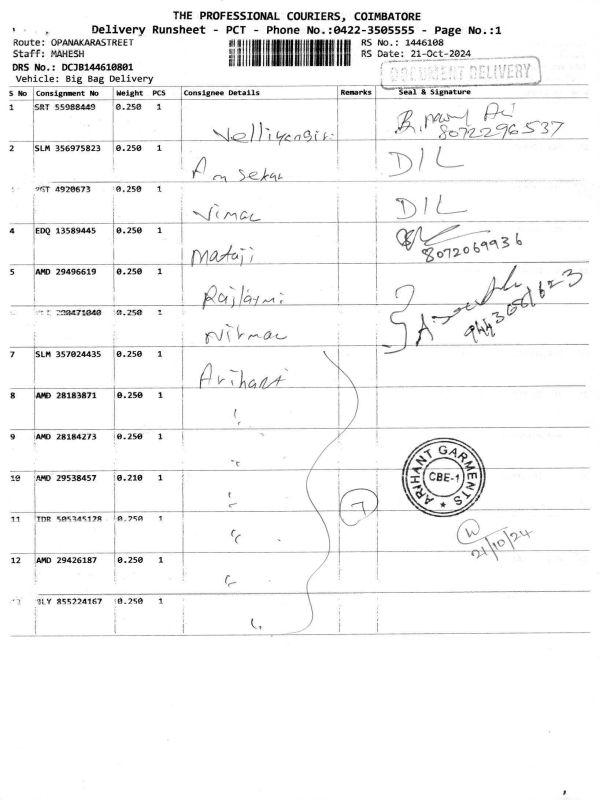 THE PROFESSIONAL COURIERS, COIMBATORE
Delivery Runsheet - PCT - Phone No.:0422-3505555 - Page No.:1
Route: OPANAKARASTREET RS No.: 1446108
Staff: MAHESH RS Date: 21-Oct-2024
DRS No.: DCJB144610801
DOCUMENT DELIVERY
Vehicle: Big Bag Delivery
S No Consignment No Weight PCS Consignee Details Remarks Seal & Signature
1 SRT 55988449 0.250 1 Velliyangiri 8072296537
2 SLM 356975823 0.250 1 D/L
4920673 0.250 1 Vimal D/L
4 EDQ 13589445 0.250 1 Mataji 8072069936
5 AMD 29496619 0.250 1 Rajlaxmi
0.250 1 Nirmal
7 SLM 357024435 0.250 1 Arihant
8 AMD 28183871 0.250 1 "
9 AMD 28184273 0.250 1 "
10 AMD 29538457 0.210 1 "
ARIHANT GARMENTS CBE-1
7
11 IDR 505345128 0.250 1 "
21/10/24
12 AMD 29426187 0.250 1 "
855224167 0.250 1 "